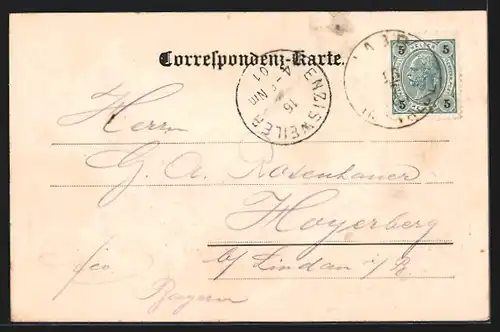 Correspondenz-Karte.
5 5
5 5
ENZISWEILER
16
4-5 Nm
01
Herrn
G. A. Rosenhauer
Hoyerberg
b/ Lindau i/B.
Bayern